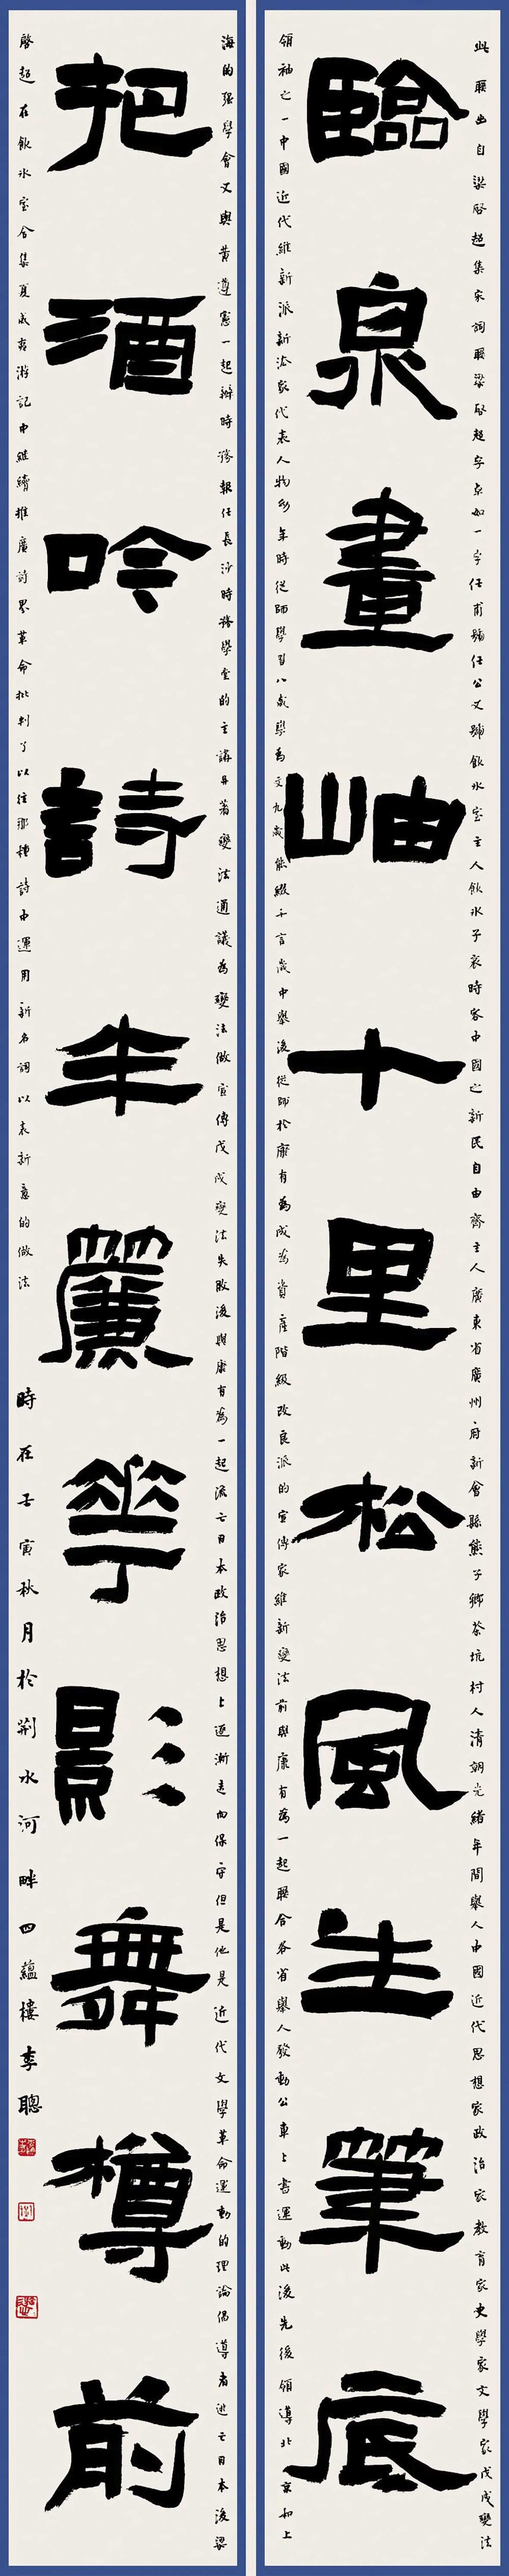 此聯出自梁啓超集宋詞聯梁啓超字卓如一字任甫號任公又號飲冰室主人飲冰子哀時客中國之新民自由齋主人廣東省廣州府新會縣熊子鄉茶坑村人清朝光緒年間舉人中國近代思想家政治家教育家史學家文學家戊戌變法
臨泉畫岫十里松風生筆底
領袖之一中國近代維新派新法家代表人物幼年時從師學習八歲學為文九歲能綴千言歲中舉後從師於康有為成為資產階級改良派的宣傳家維新變法前與康有為一起聯合各省舉人發動公車上書運動此後先後領導北京和上
海的強學會又與黄遵憲一起辦時務報任長沙時務學堂的主講并著變法通議為變法做宣傳戊戌變法失敗後與康有為一起流亡日本政治思想上逐漸走向保守但是他是近代文學革命運動的理論倡導者逃亡日本後梁
把酒吟詩半簾花影舞樽前
啓超在飲冰室合集夏威夷游記中繼續推廣詩界革命批判了以往那種詩中運用新名詞以表新意的做法
時在壬寅秋月於荆水河畔四蘊樓李聰